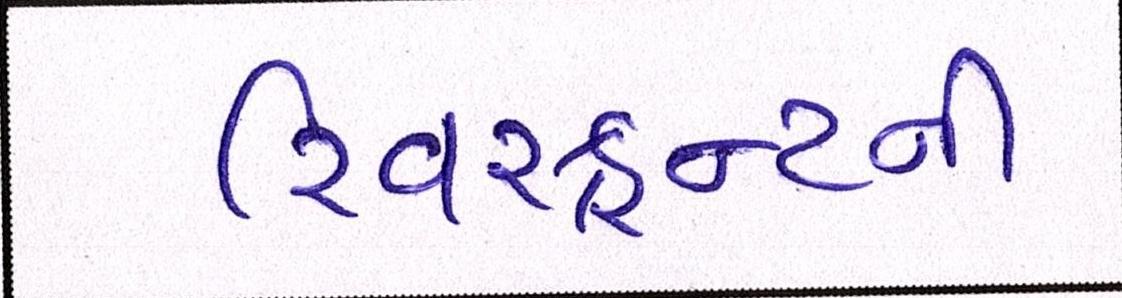 રિવરફ્રન્ટની